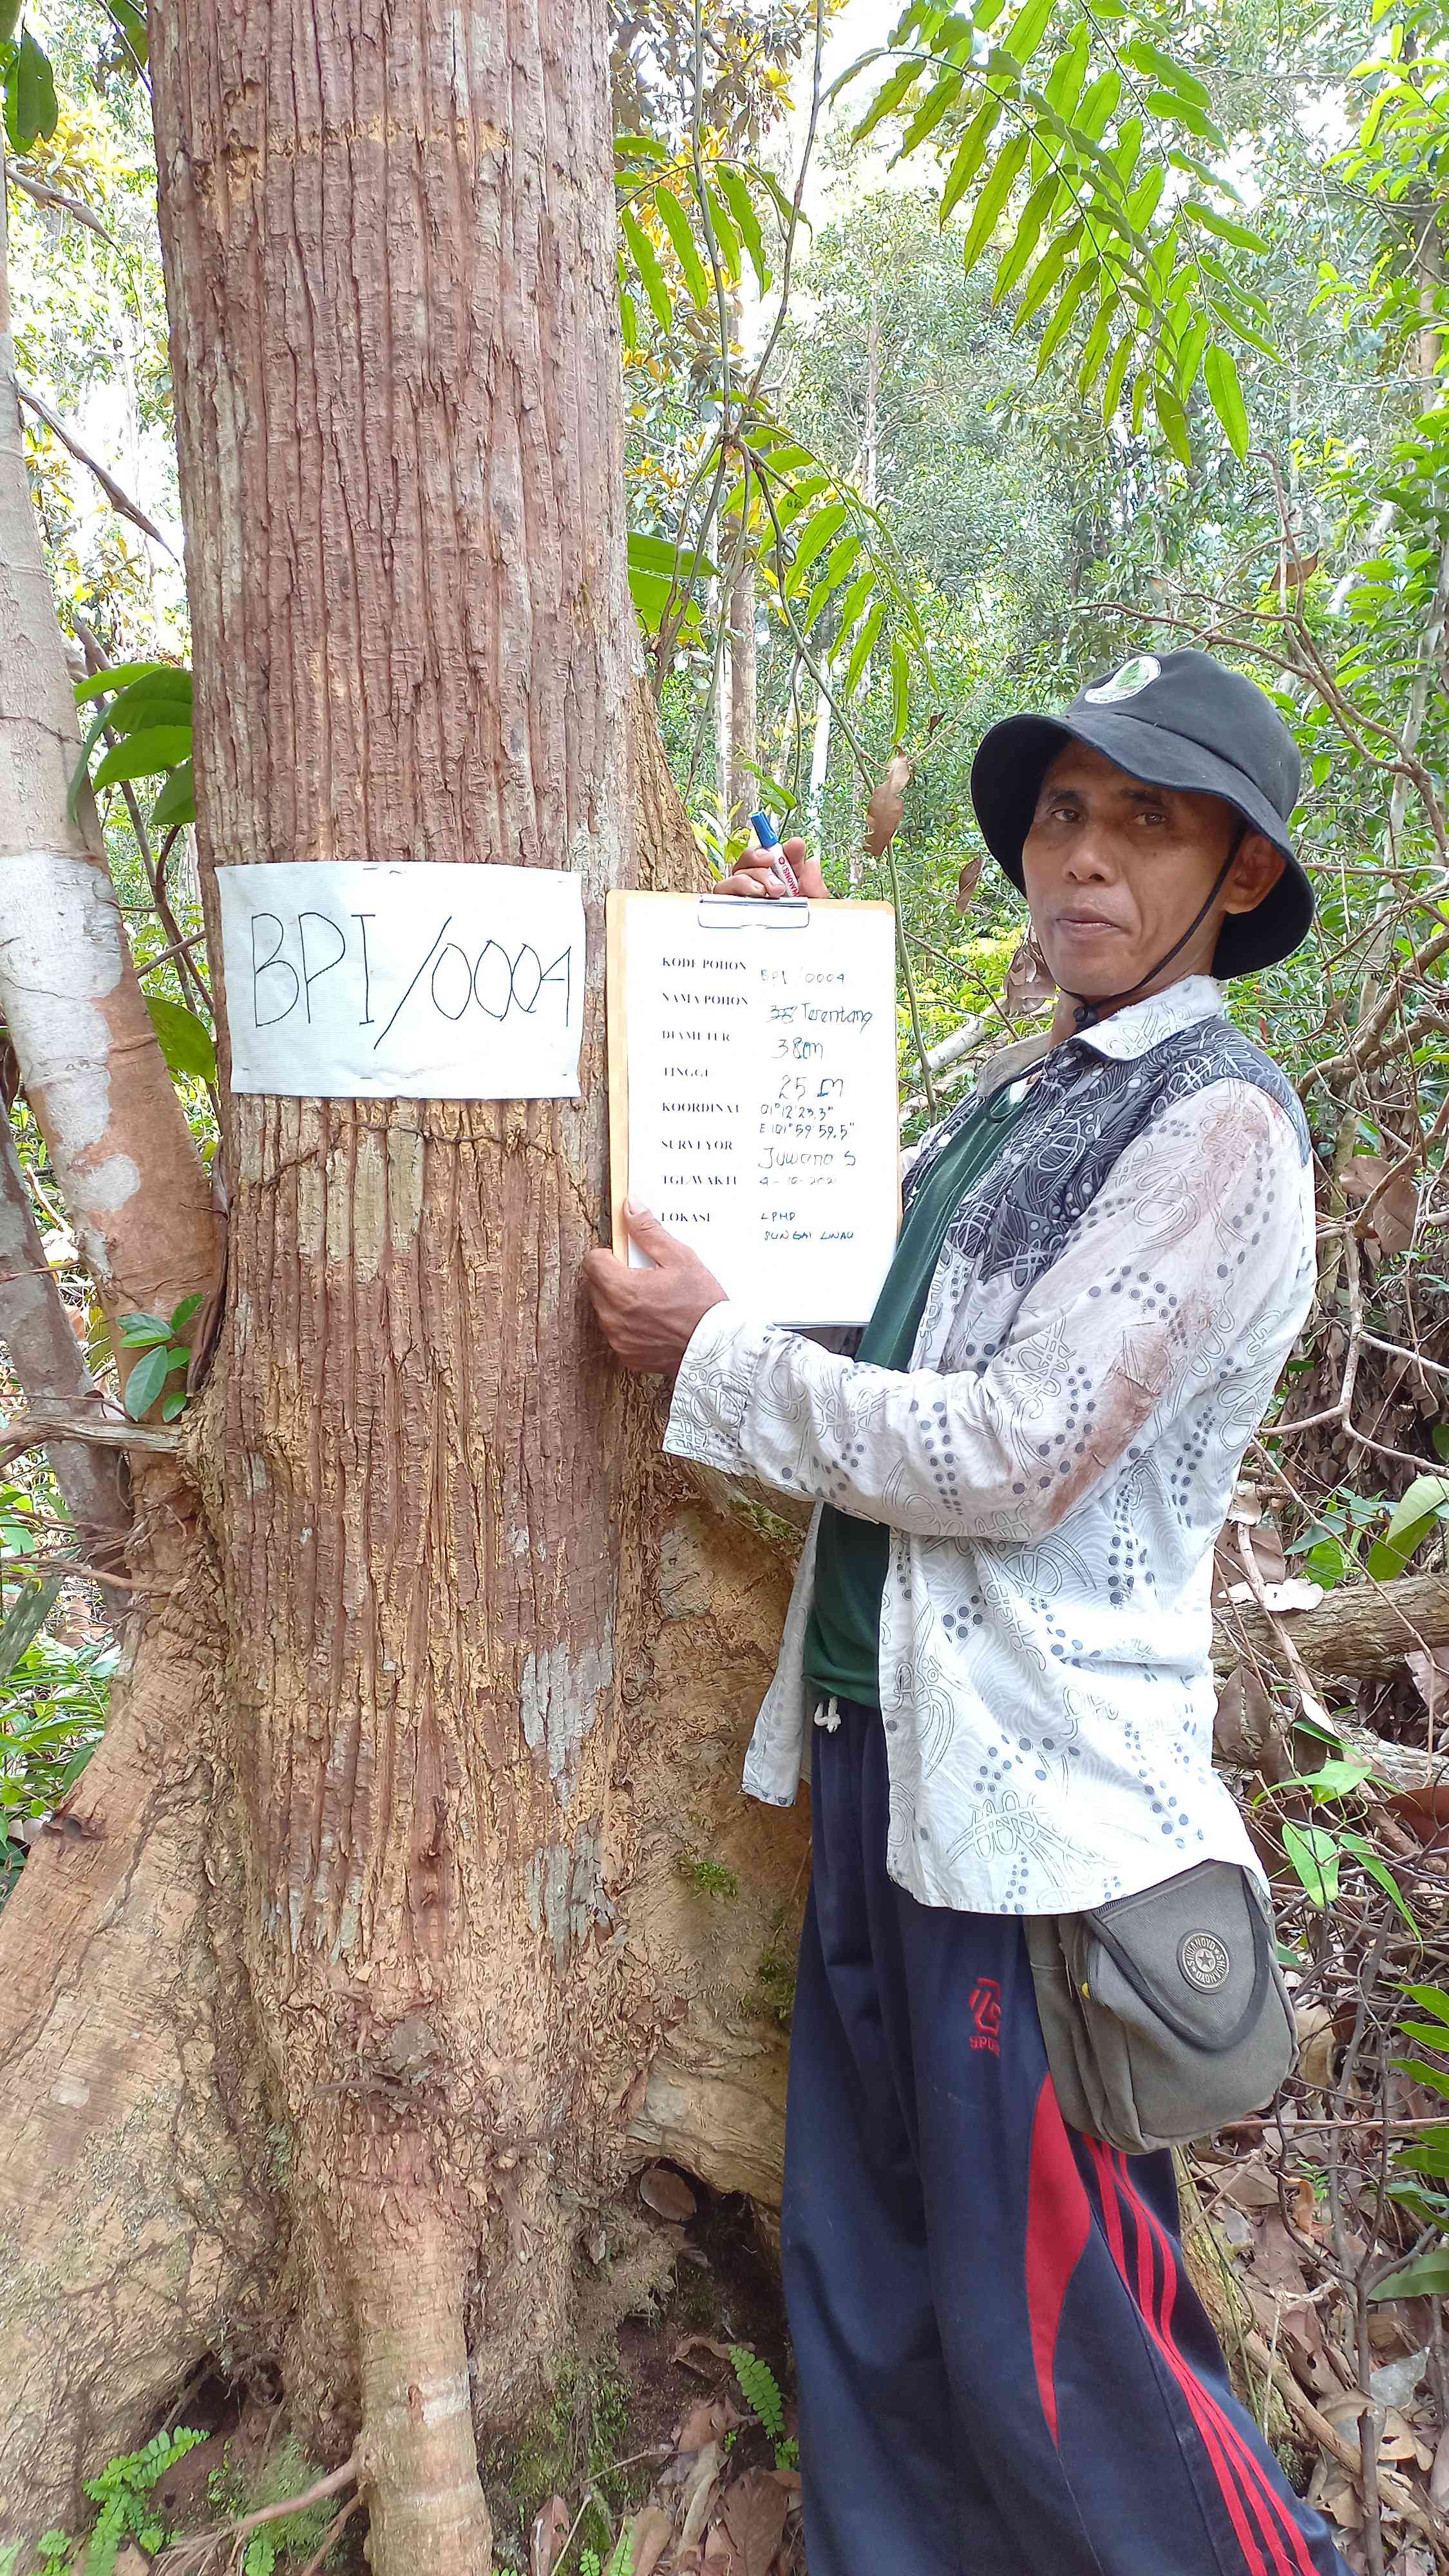 BPI/0004
SNOWMAN
KODE POHON BPI/0004
NAMA POHON Terentang
DIAMETER 38cm
TINGGI 25 m
KOORDINAT 01°12'23.3"
E 101°59'59.5"
SURVEYOR Juwono S
TGL/WAKTU 4-10-2021
LOKASI LPHD
SUNGAI LINAU
SHUAHOYO SHUAHOYO
SPORT